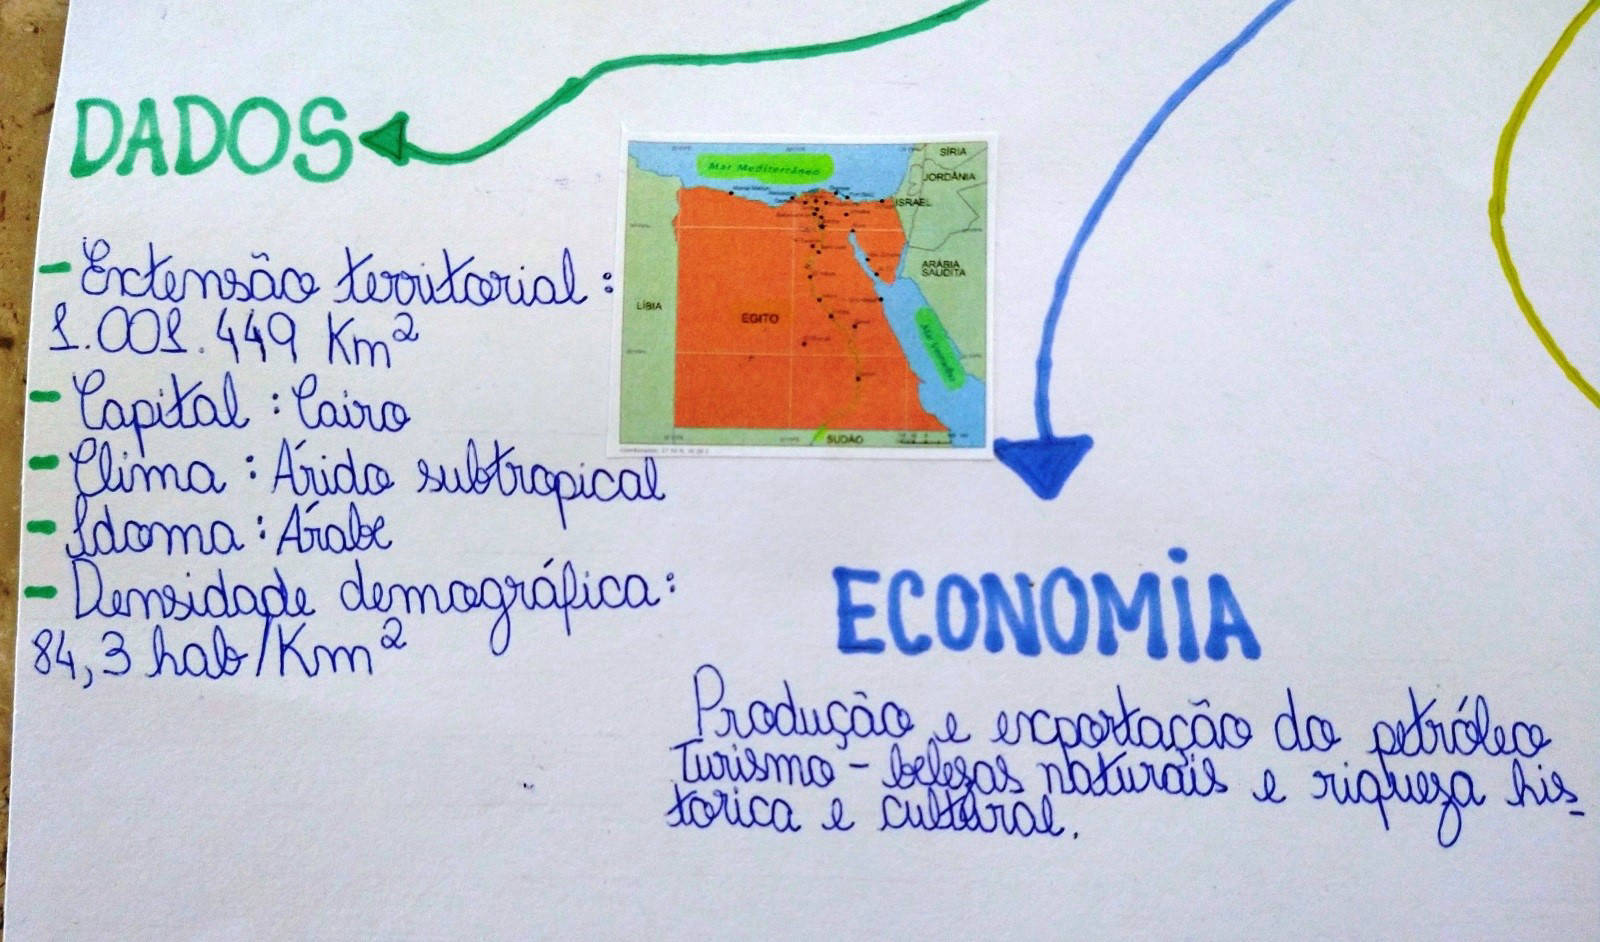 DADOS
- Extensão territorial :
1.001.449 Km²
- Capital : Cairo
- Clima : Árido subtropical
- Idioma : Árabe
- Densidade demográfica :
84,3 hab/Km²
Mar Mediterrâneo
SÍRIA
JORDÂNIA
ISRAEL
ARÁBIA
SAUDITA
LÍBIA
EGITO
Mar Vermelho
SUDÃO
ECONOMIA
Produção e exportação do petróleo
Turismo - belezas naturais e riqueza his-
torica e cultural.